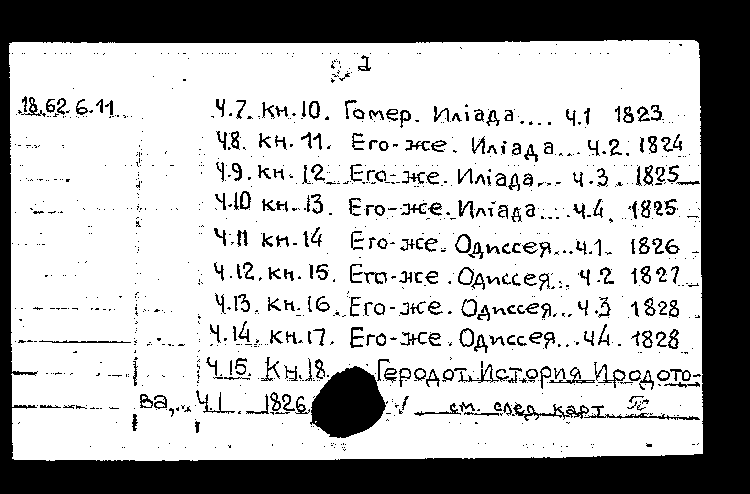 2
18.62.6.11 Ч.7. кн.10. Гомер. Иліада.... ч.1 1823
Ч.8. кн. 11. Его-же. Иліада... ч.2. 1824
Ч.9. кн. 12 Его-же. Иліада... ч.3. 1825
Ч.10 кн. 13. Его-же. Иліада... ч.4. 1825
Ч.11 кн. 14 Его-же. Одиссея...ч.1. 1826
Ч.12. кн. 15. Его-же. Одиссея.. ч.2 1827
Ч.13. кн. 16. Его-же. Одиссея...ч.3 1828
Ч.14. кн.17. Его-же. Одиссея...ч4. 1828
Ч.15. Кн.18. Геродот. История Иродото-
ва,... Ч.1 1826 см. след карт